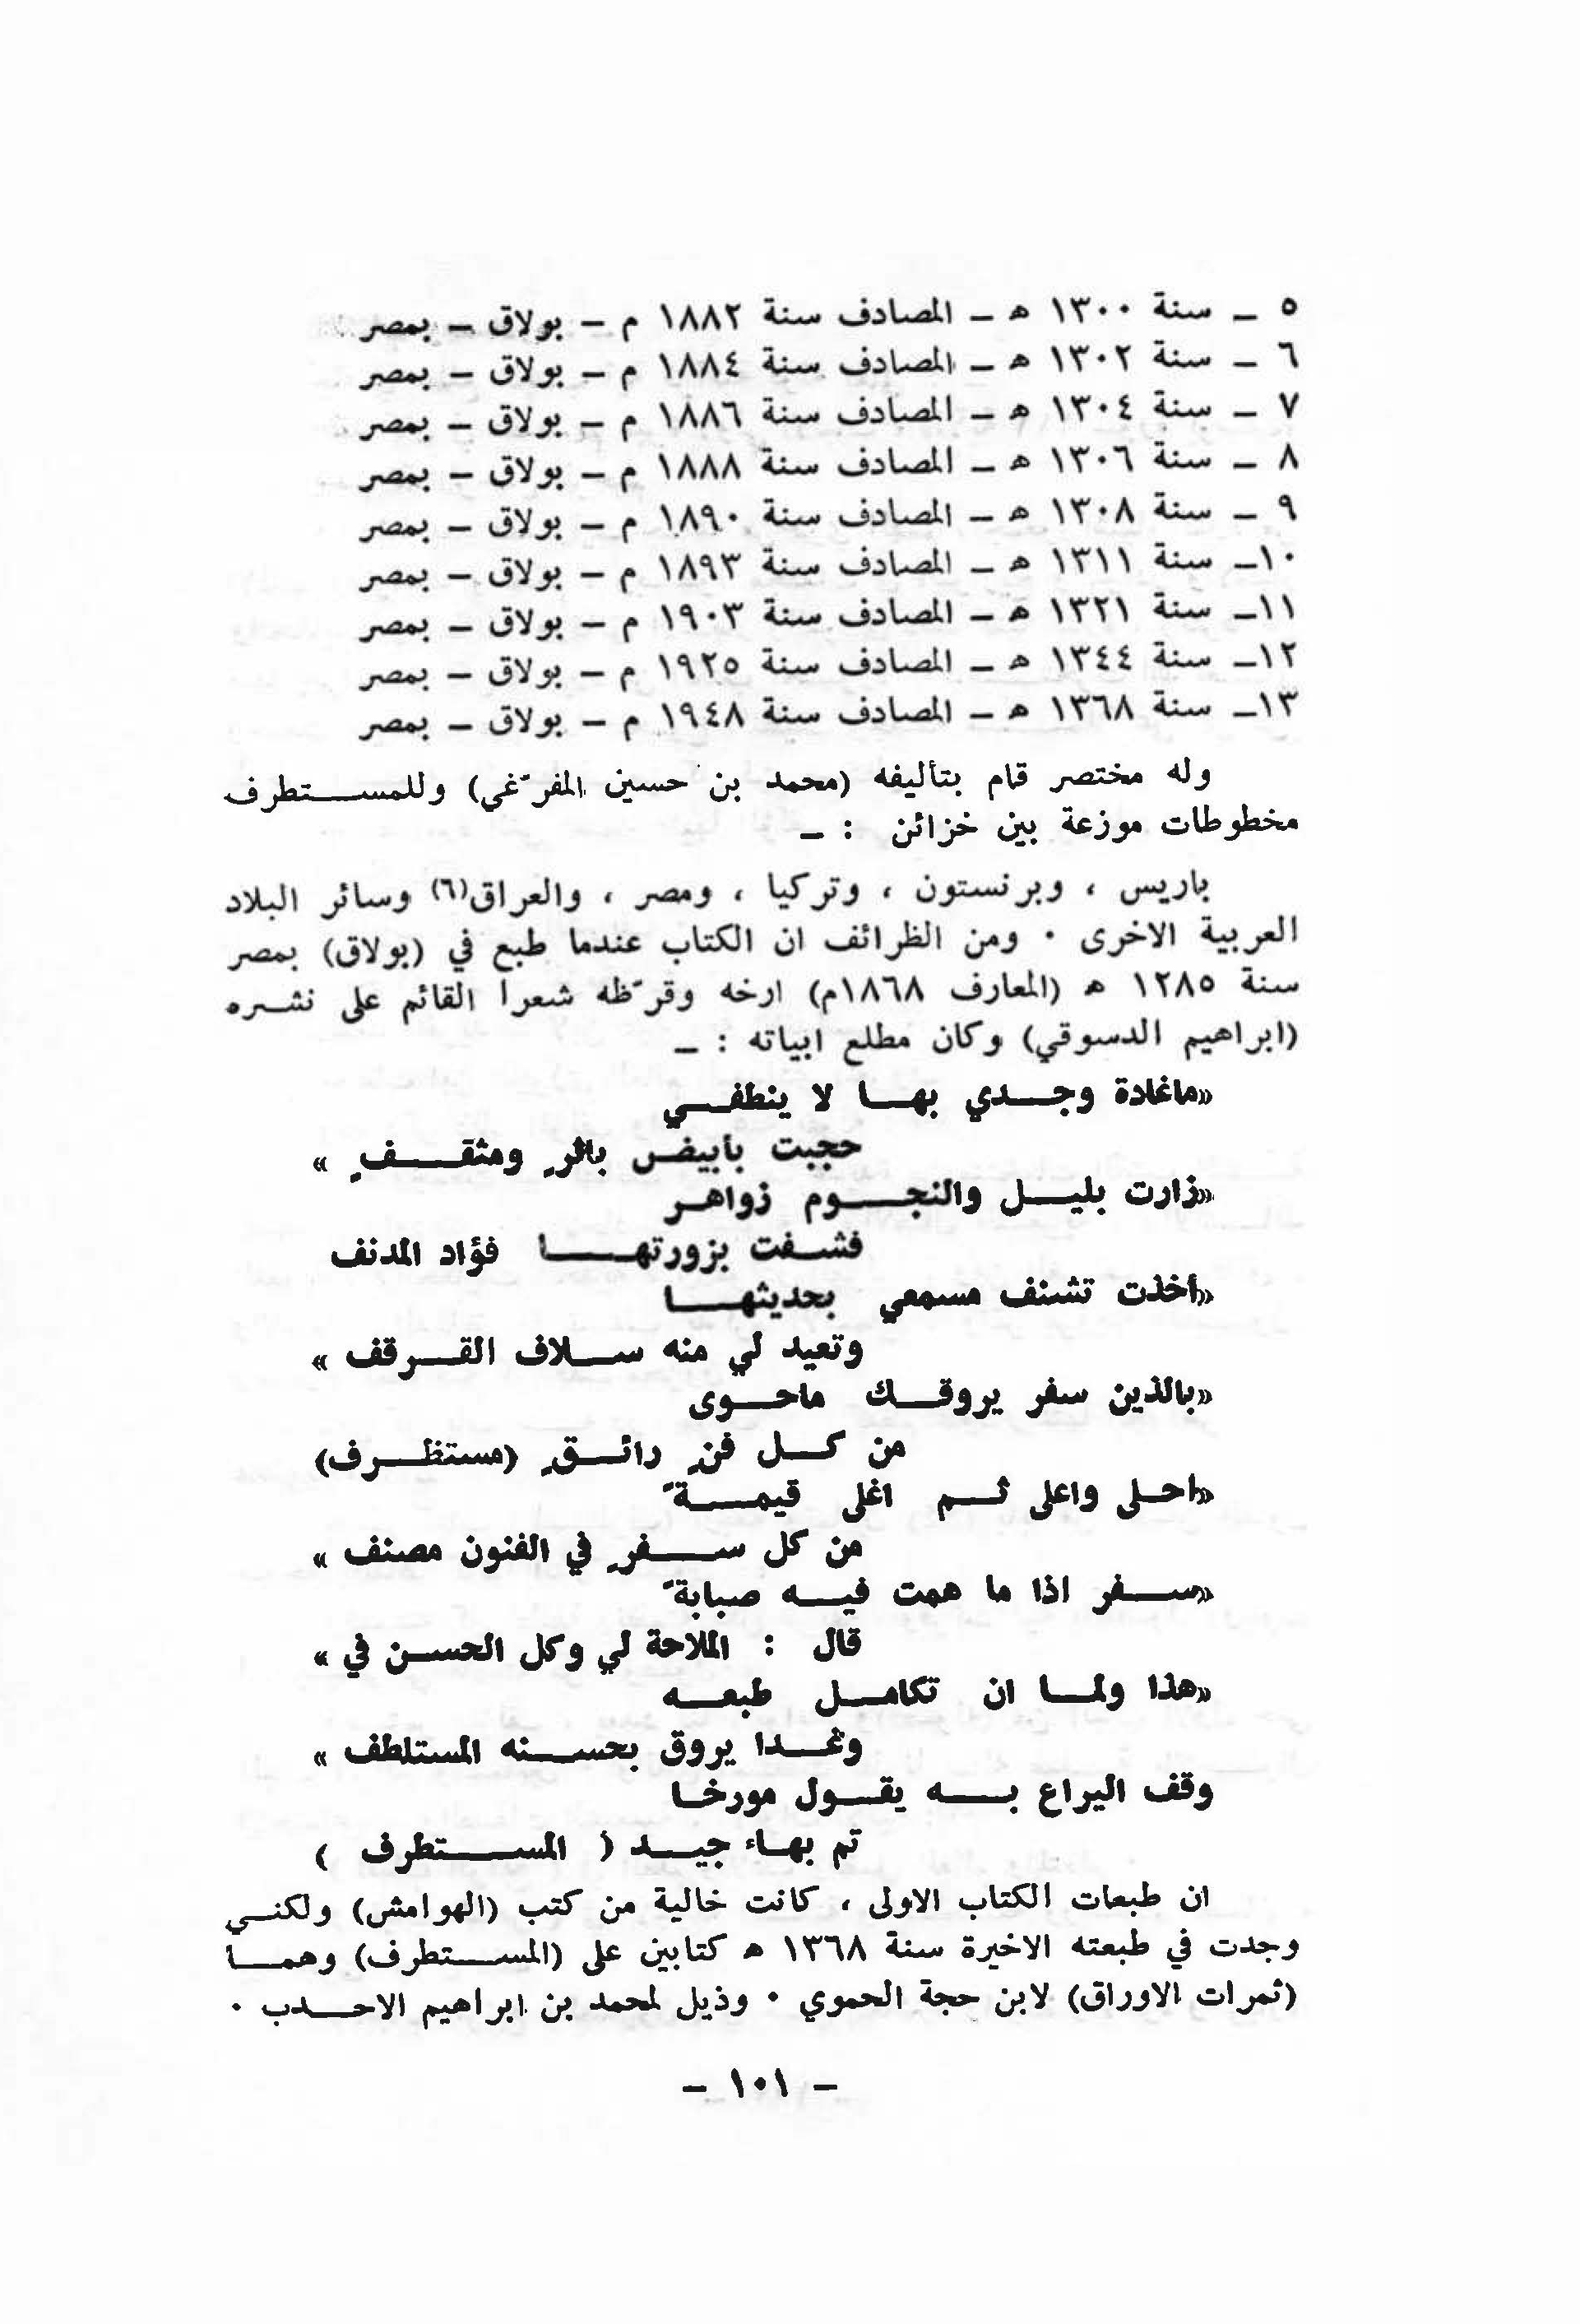 ٥ ـ سنة ١٣٠٠ هـ ـ المصادف سنة ١٨٨٢ م ـ بولاق ـ بمصر
٦ ـ سنة ١٣٠٢ هـ ـ المصادف سنة ١٨٨٤ م ـ بولاق ـ بمصر
٧ ـ سنة ١٣٠٤ هـ ـ المصادف سنة ١٨٨٦ م ـ بولاق ـ بمصر
٨ ـ سنة ١٣٠٦ هـ ـ المصادف سنة ١٨٨٨ م ـ بولاق ـ بمصر
٩ ـ سنة ١٣٠٨ هـ ـ المصادف سنة ١٨٩٠ م ـ بولاق ـ بمصر
١٠ـ سنة ١٣١١ هـ ـ المصادف سنة ١٨٩٣ م ـ بولاق ـ بمصر
١١ـ سنة ١٣٢١ هـ ـ المصادف سنة ١٩٠٣ م ـ بولاق ـ بمصر
١٢ـ سنة ١٣٤٤ هـ ـ المصادف سنة ١٩٢٥ م ـ بولاق ـ بمصر
١٣ـ سنة ١٣٦٨ هـ ـ المصادف سنة ١٩٤٨ م ـ بولاق ـ بمصر
وله مختصر قام بتأليفه (محمد بن حسين المفرّغي) وللمستطرف
مخطوطات موزعة بين خزائن : ـ
باريس ، وبرنستون ، وتركيا ، ومصر ، والعراق(٦) وسائر البلاد
العربية الاخرى ٠ ومن الظرائف ان الكتاب عندما طبع في (بولاق) بمصر
سنة ١٢٨٥ هـ (المعارف ١٨٦٨م) ارخه وقرّظه شعرا القائم على نشره
(ابراهيم الدسوقي) وكان مطلع ابياته : ـ
«ماغادة وجدي بها لا ينطفي
حجبت بأبيض باترٍ ومثقفٍ »
«زارت بليل والنجوم زواهر
فشفت بزورتها فؤاد المدنف
«أخذت تشنف مسمعي بحديثها
وتعيد لي منه سلاف القرقف »
«بالذين سفر يروقك ماحوى
من كل فنٍ رائقٍ (مستظرف)
«احلى واعلى ثم اغلى قيمةً
من كل سفرٍ في الفنون مصنف »
«سفر اذا ما همت فيه صبابةً
قال : الملاحة لي وكل الحسن في »
«هذا ولما ان تكامل طبعه
وغدا يروق بحسنه المستلطف »
وقف اليراع به يقول مورخا
تم بهاء جيد ( المستطرف )
ان طبعات الكتاب الاولى ، كانت خالية من كتب (الهوامش) ولكني
وجدت في طبعته الاخيرة سنة ١٣٦٨ هـ كتابين على (المستطرف) وهما
(ثمرات الاوراق) لابن حجة الحموي ٠ وذيل لمحمد بن ابراهيم الاحدب ٠
ـ ١٠١ ـ